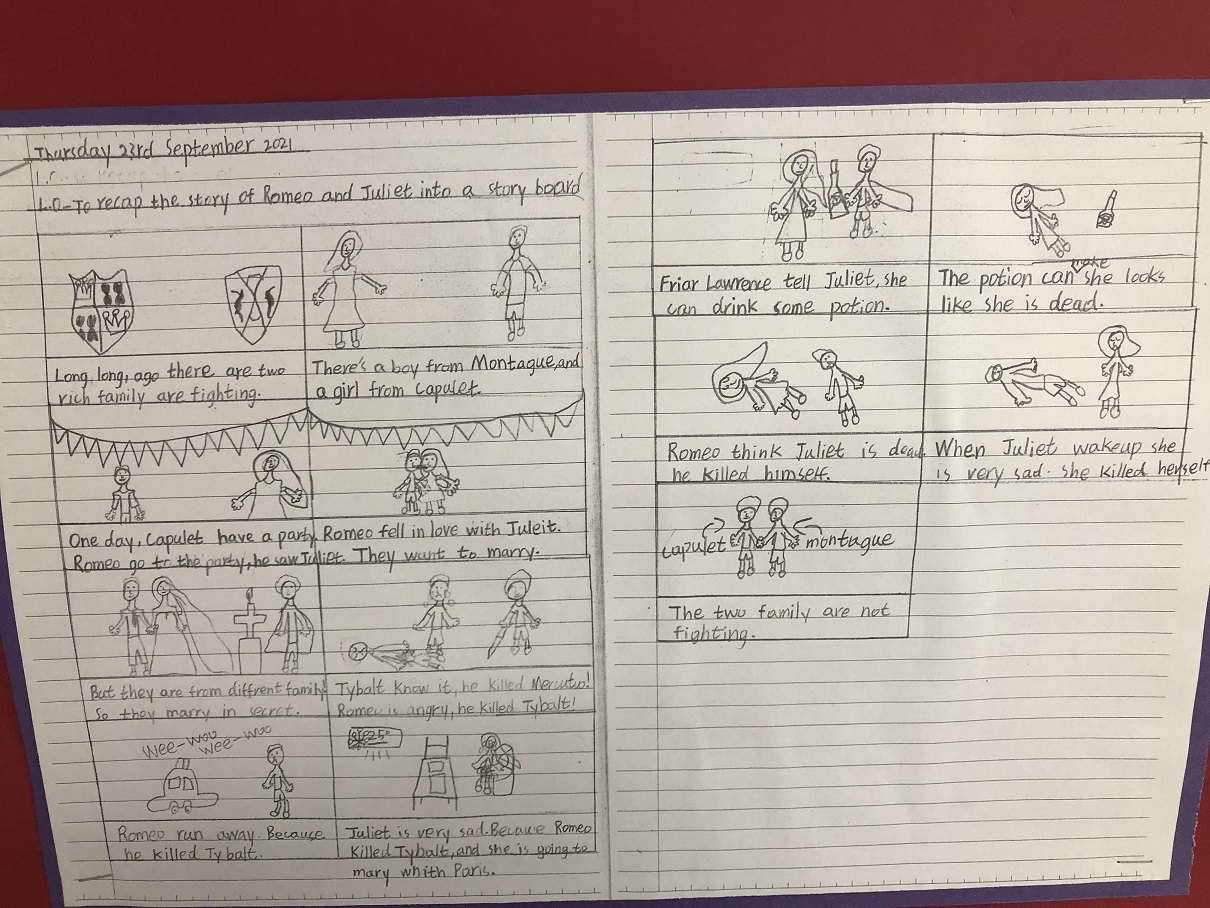 Thursday 23rd September 2021
L.O-To recap the story of Romeo and Juliet into a story board
Long, long, ago there are two
rich family are fighting.
There's a boy from Montague,and
a girl from Capulet.
One day, Capulet have a party.
Romeo go to the party, he saw Juliet.
Romeo fell in love with Juleit.
They want to marry.
But they are from diffrent family!
So they marry in secret.
Tybalt know it, he killed Mercutio!
Romeo is angry, he killed Tybalt!
wee-woo
wee-woo
Romeo run away. Because
he killed Tybalt.
25°
Juliet is very sad. Becaue Romeo
killed Tybalt, and she is going to
mary whith Paris.
Friar Lawrence tell Juliet, she
can drink some potion.
make
The potion can she looks
like she is dead.
Romeo think Juliet is dead
he killed himself.
When Juliet wakeup she
is very sad. she killed herself
capulet
montague
The two family are not
fighting.